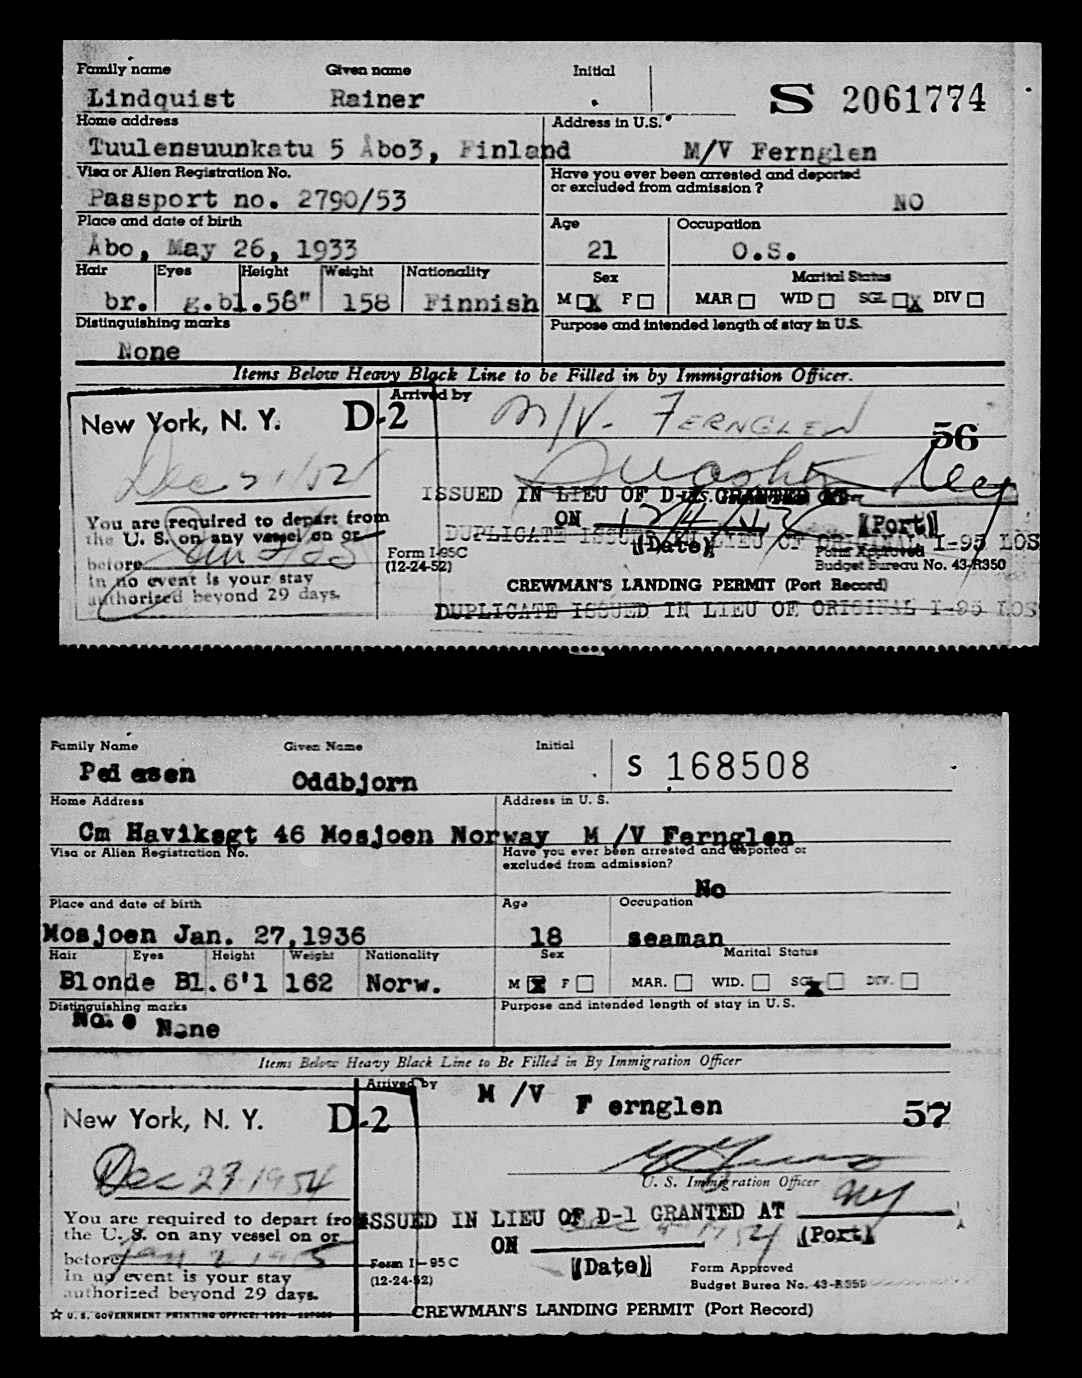 Family name Given name Initial
Lindquist Rainer . S 2061774
Home address Address in U.S.
Tuulensuunkatu 5 Åbo3, Finland M/V Fernglen
Visa or Alien Registration No. Have you ever been arrested and deported
or excluded from admission?
Passport no. 2790/53 NO
Place and date of birth Age Occupation
Åbo, May 26, 1933 21 O.S.
Hair Eyes Height Weight Nationality Sex Marital Status
br. g.bl. 58" 158 Finnish M X F MAR WID SGL X DIV
Distinguishing marks Purpose and intended length of stay in U.S.
None
Items Below Heavy Black Line to be Filled in by Immigration Officer.
Arrived by
New York, N. Y. D-2 M/V. FERNGLEN 56
ISSUED IN LIEU OF D- GRANTED AT
You are required to depart from
the U. S. on any vessel on or
before
in no event is your stay
authorized beyond 29 days.
ON (Port)
DUPLICATE ISSUED IN LIEU OF ORIGINAL I-95 LOS
(Date)
Form I-95C Form Approved
(12-24-52) Budget Bureau No. 43-R350
CREWMAN'S LANDING PERMIT (Port Record)
DUPLICATE ISSUED IN LIEU OF ORIGINAL I-95 LOS
Family Name Given Name Initial
Pedersen Oddbjorn . S 168508
Home Address Address in U. S.
Cm Haviksgt 46 Mosjoen Norway M /V Fernglen
Visa or Alien Registration No. Have you ever been arrested and deported or
excluded from admission?
No
Place and date of birth Age Occupation
Mosjoen Jan. 27,1936 18 seaman
Hair Eyes Height Weight Nationality Sex Marital Status
Blonde Bl. 6'1 162 Norw. M X F MAR. WID. SGL X DIV.
Distinguishing marks Purpose and intended length of stay in U. S.
None
Items Below Heavy Black Line to Be Filled in By Immigration Officer
Arrived by
M /V Fernglen
New York, N. Y. D-2 57
Dec 23 1954
U. S. Immigration Officer
You are required to depart from
the U. S. on any vessel on or
before
In no event is your stay
authorized beyond 29 days.
ISSUED IN LIEU OF D-1 GRANTED AT NY
(Port)
ON
(Date)
Form I-95C Form Approved
(12-24-52) Budget Burea No. 43-R350
☆ U. S. GOVERNMENT PRINTING OFFICE: CREWMAN'S LANDING PERMIT (Port Record)